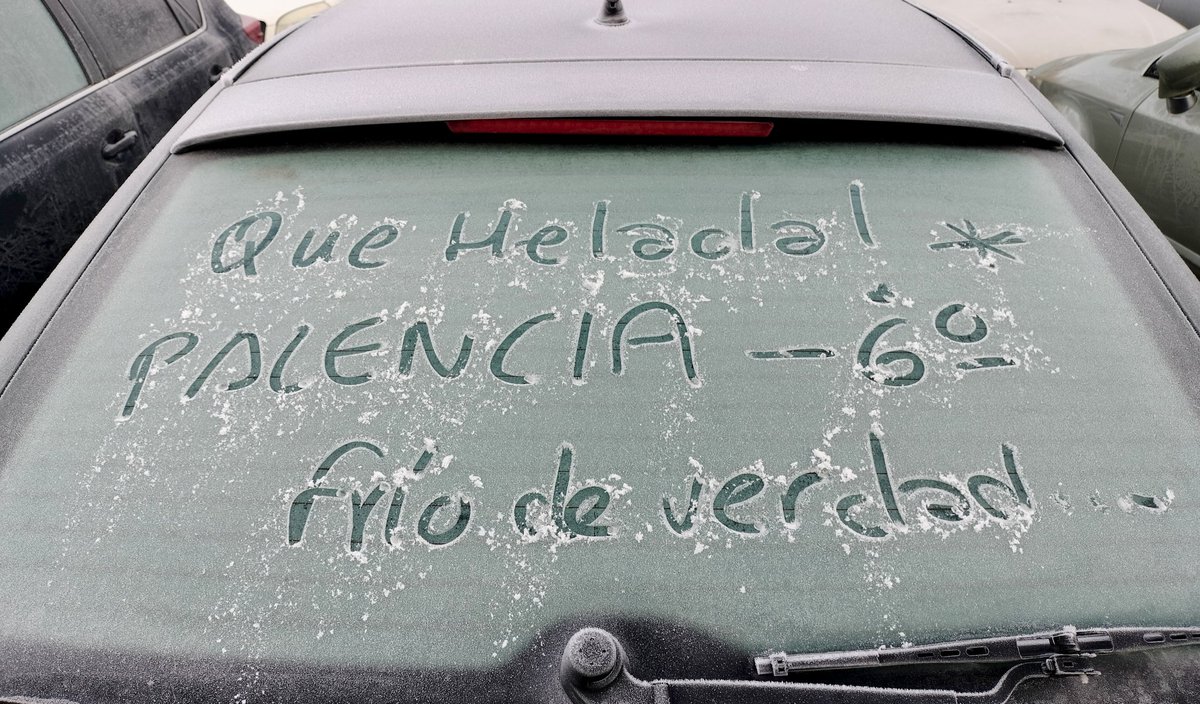 Que Helada! *
PALENCIA -6º
frío de verdad....